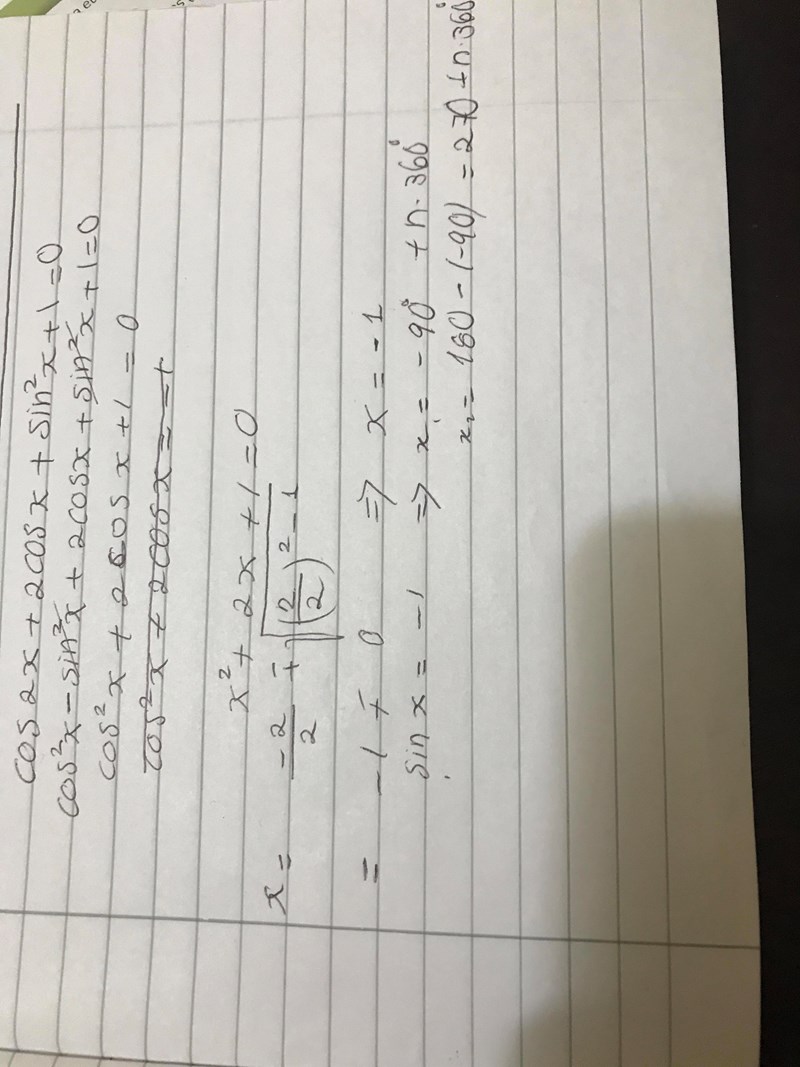 cos 2x + 2cosx + sin²x + 1 = 0
cos²x - sin²x + 2cosx + sin²x + 1 = 0
cos²x + 2cosx + 1 = 0
cos²x + 2cosx = -1
x² + 2x + 1 = 0
x = -2/2 ∓ √((2/2)² - 1)
= -1 ∓ 0 ⇒ x = -1
sin x = -1 ⇒ x₁ = -90° + n·360°
x₂ = 180 - (-90) = 270 + n·360°